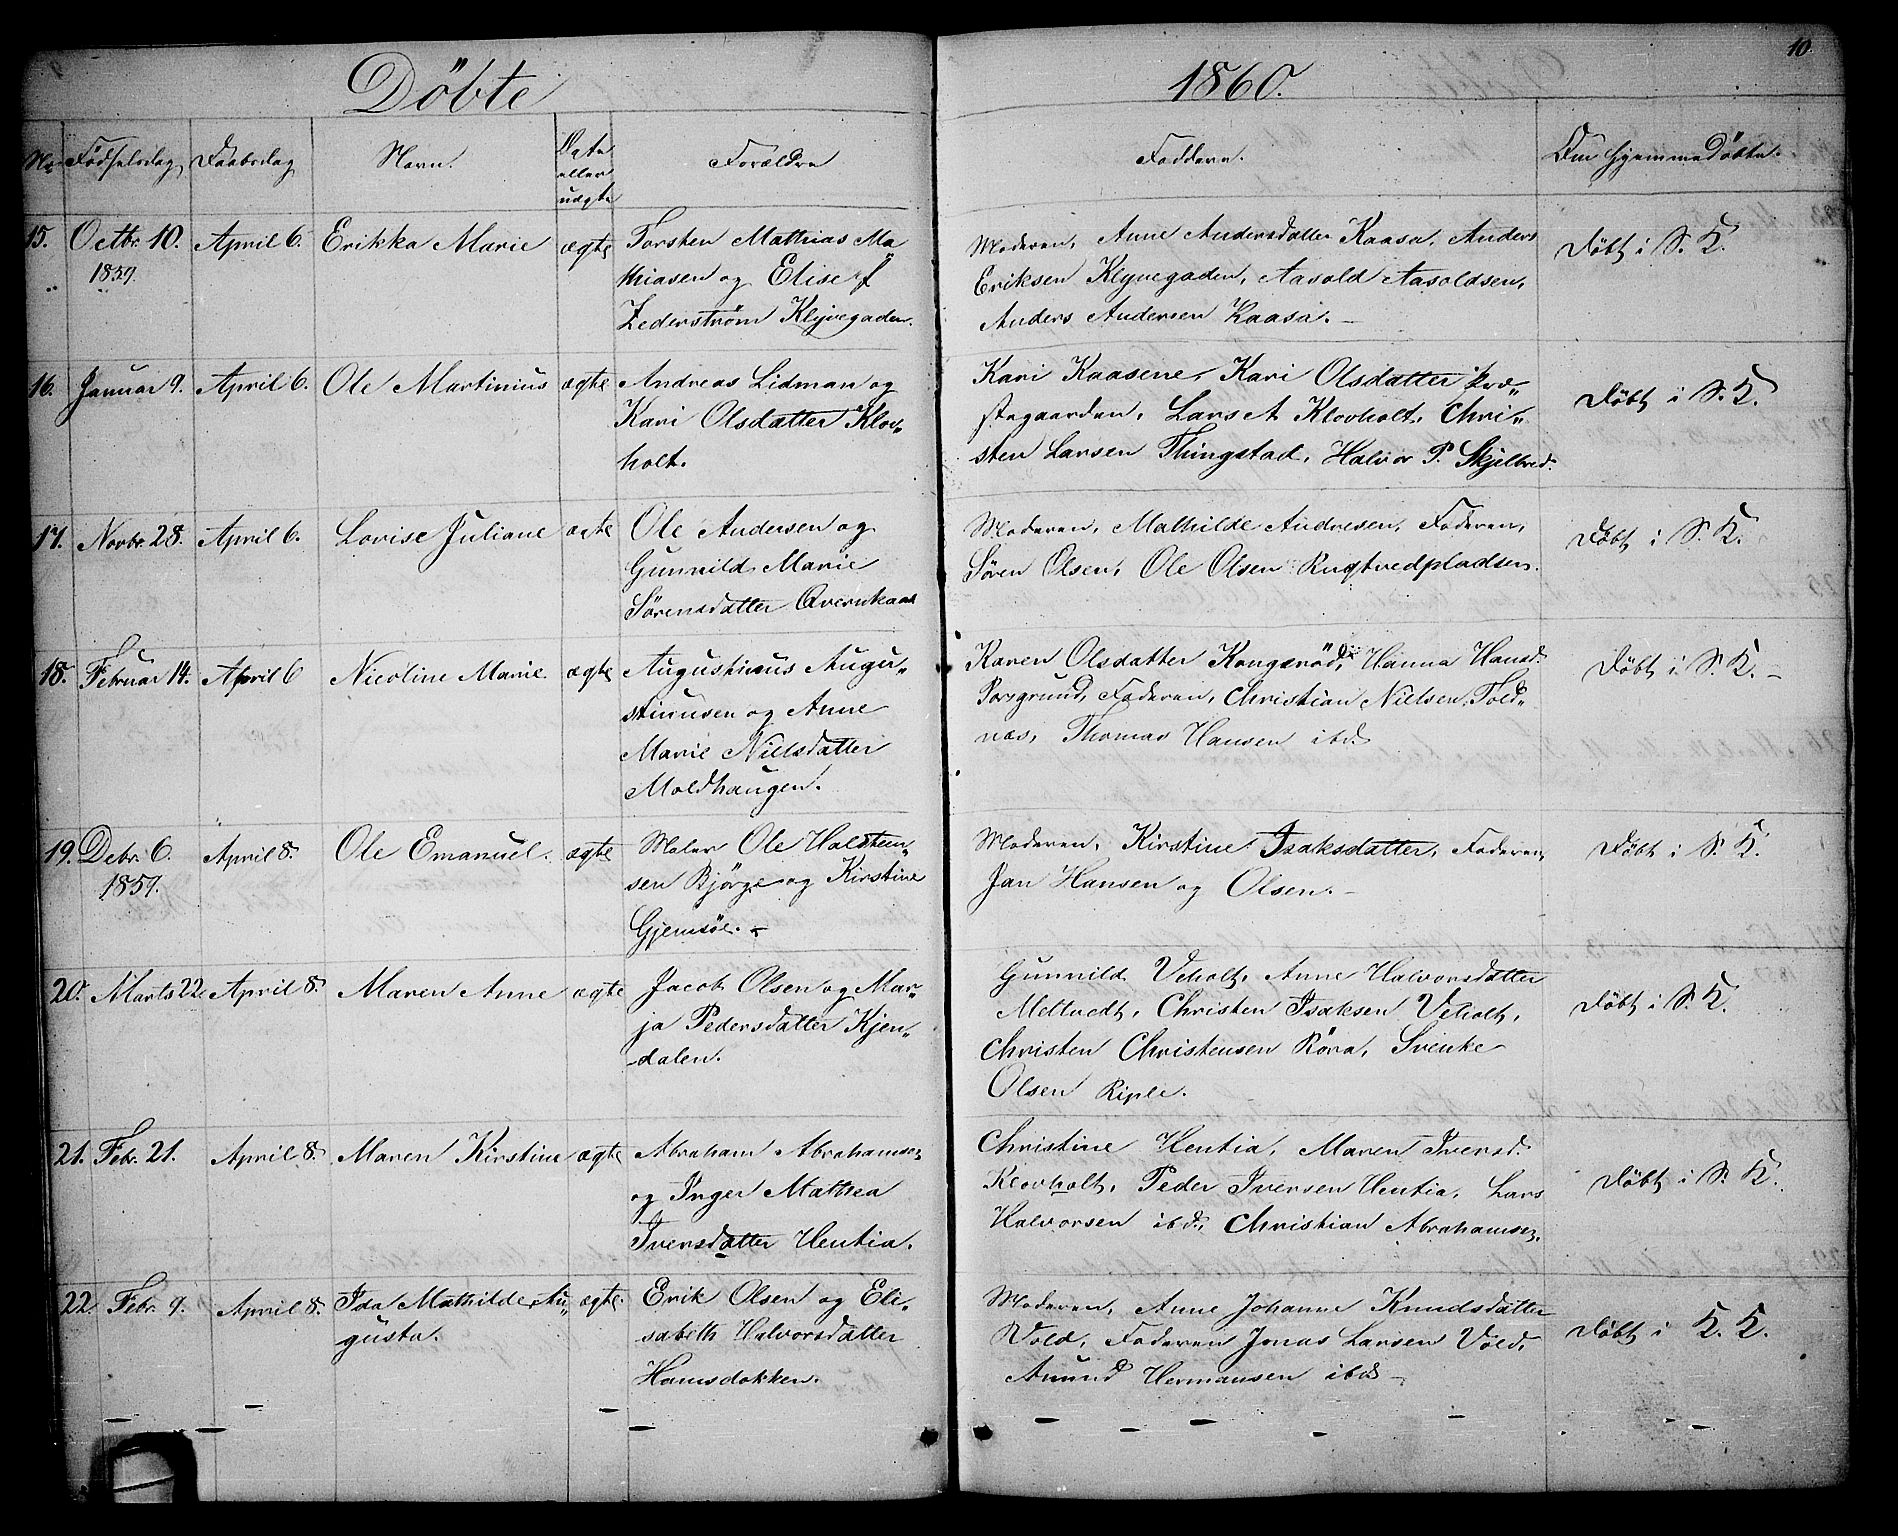 Döbte
1860.
10
No Födselsdag Daabsdag Navn Ægte eller uægte Forældre Faddere. Om hjemmedöbte.
15. Octbr. 10. 1859. April 6. Erikka Marie ægte
Torsten Mathias Ma
thiasen og Elise f
Zederström Klyvegaden.
Moderen, Anne Andersdatter Kaasa, Anders
Eriksen Klyvegaden, Aasold Aasoldsen,
Anders Andersen Kaasa. –
Döbt i S. K.
16. Januar 9. April 6. Ole Martinius ægte
Andreas Lidman og
Kari Olsdatter Klov„
holt.
Kari Kaasene, Kari Olsdatter Præ„
stegaarden, Lars A Klovholt, Chri„
sten Larsen Thingstad, Halvor P. Skjelbred.
Döbt i S. K.
17. Novbr. 28. April 6. Lovise Juliane ægte
Ole Andersen og
Gunnild Marie
Sörensdatter Qvernkaas
Moderen, Mathilde Andresen, Faderen,
Sören Olsen, Ole Olsen Rugtvedpladsen.
Döbt i S. K.
18. Februar 14. April 6 Nicoline Marie ægte
Augustinus Augu„
stinusen og Anne
Marie Nielsdatter
Moldhaugen.
Karen Olsdatter Kongeröd, Hanna Hansd.
Porsgrund, Faderen, Christian Nielsen, Told„
næs, Thomas Hansen ibd.
Döbt i S. K. –
19. Debr. 6. 1859. April 8. Ole Emanuel. ægte
Maler Ole Halsten„
sen Bjørge og Kirstine
Gjemsöe. –
Moderen, Kirstine Isaksdatter, Faderen,
Jan Hansen og Olsen. –
Döbt i S. K.
20. Marts 22. April 8. Maren Anne ægte
Jacob Olsen og Mar„
ja Pedersdatter Kjen„
dalen.
Gunnild Veholt, Anne Halvorsdatter
Meltvedt, Christen Isaksen Veholt,
Christen Christensen Röra, Svenke
Olsen Riple.
Döbt i S. K.
21. Febr. 21. April 8. Maren Kirstine ægte
Abraham Abrahamsen
og Inger Mathea
Iversdatter Hentia.
Christine Hentia, Maren Iversd.
Klovholt, Peder Iversen Hentia, Lars
Halvorsen ibd., Christian Abrahamsen.
Döbt i S. K.
22. Febr. 9. April 8. Ida Mathilde Au„
gusta. ægte.
Erik Olsen og Eli„
sabeth Halvorsdatter
Hamsdokken.
Moderen, Anne Johanne Knudsdatter
Vold, Faderen Jonas Larsen Vold,
Amund Hermansen ibd –
Döbt i K. K.